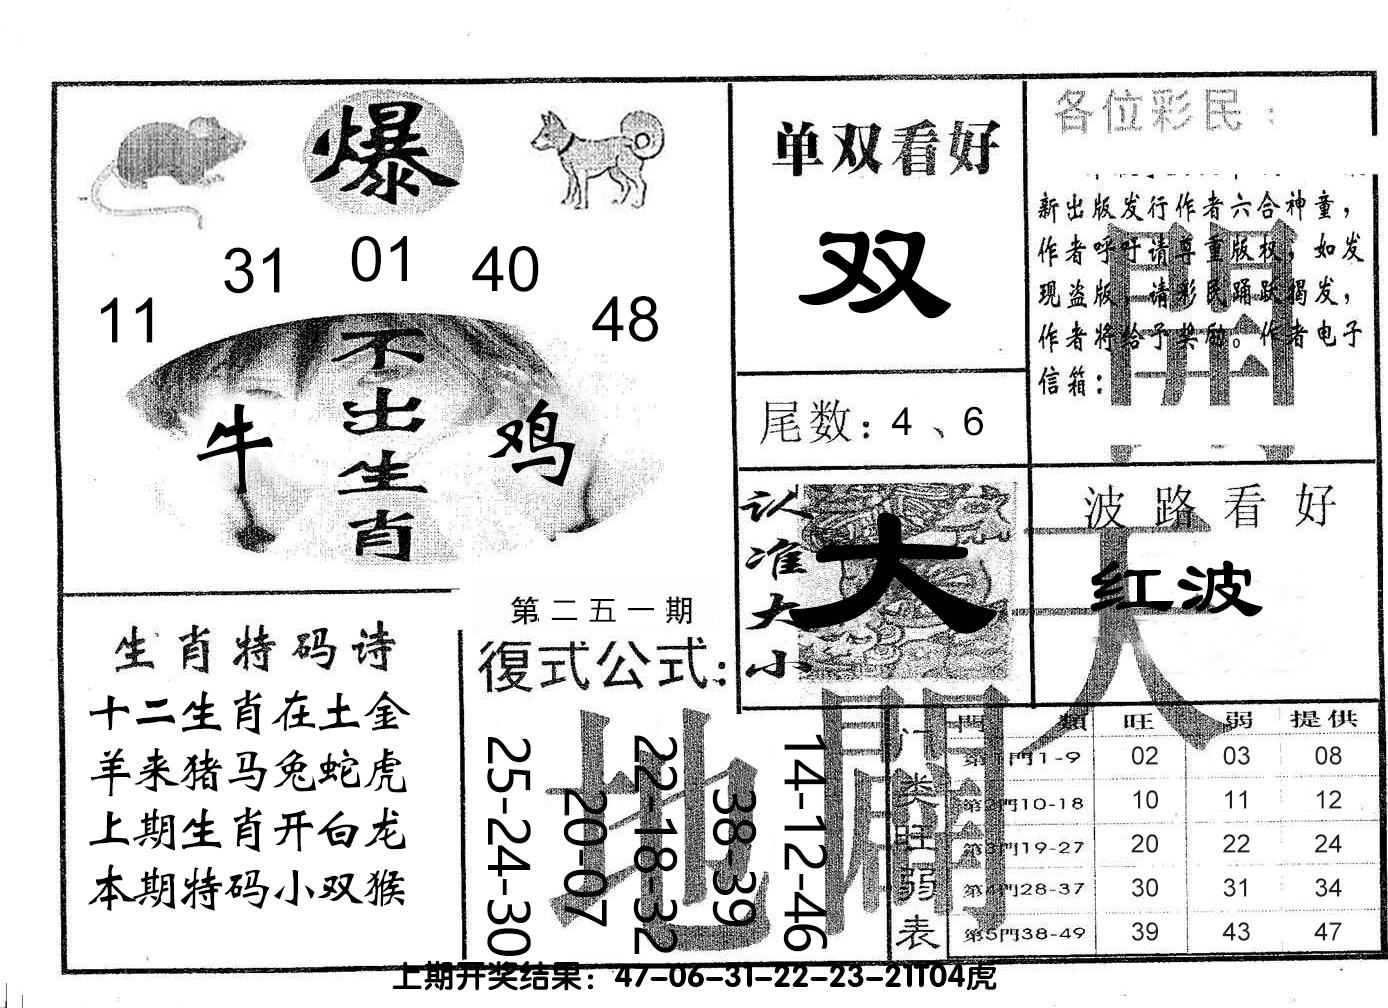 爆
31 01 40
11 48
不出生肖
牛 鸡
单双看好
双
尾数：4、6
各位彩民：
新出版发行作者六合神童，
作者呼吁请尊重版权，如发
现盗版，请彩民踊跃揭发，
作者将给予奖励。作者电子
信箱：
認准大小
大
波路看好
红波
生肖特码诗
十二生肖在土金
羊来猪马兔蛇虎
上期生肖开白龙
本期特码小双猴
第二五一期
復式公式：
25-24-30
20-07
22-18-32
38-39
14-12-46
天
地
開
門类旺弱表
門類 旺 弱 提供
第1門1-9 02 03 08
第2門10-18 10 11 12
第3門19-27 20 22 24
第4門28-37 30 31 34
第5門38-49 39 43 47
上期开奖结果：47-06-31-22-23-21T04虎